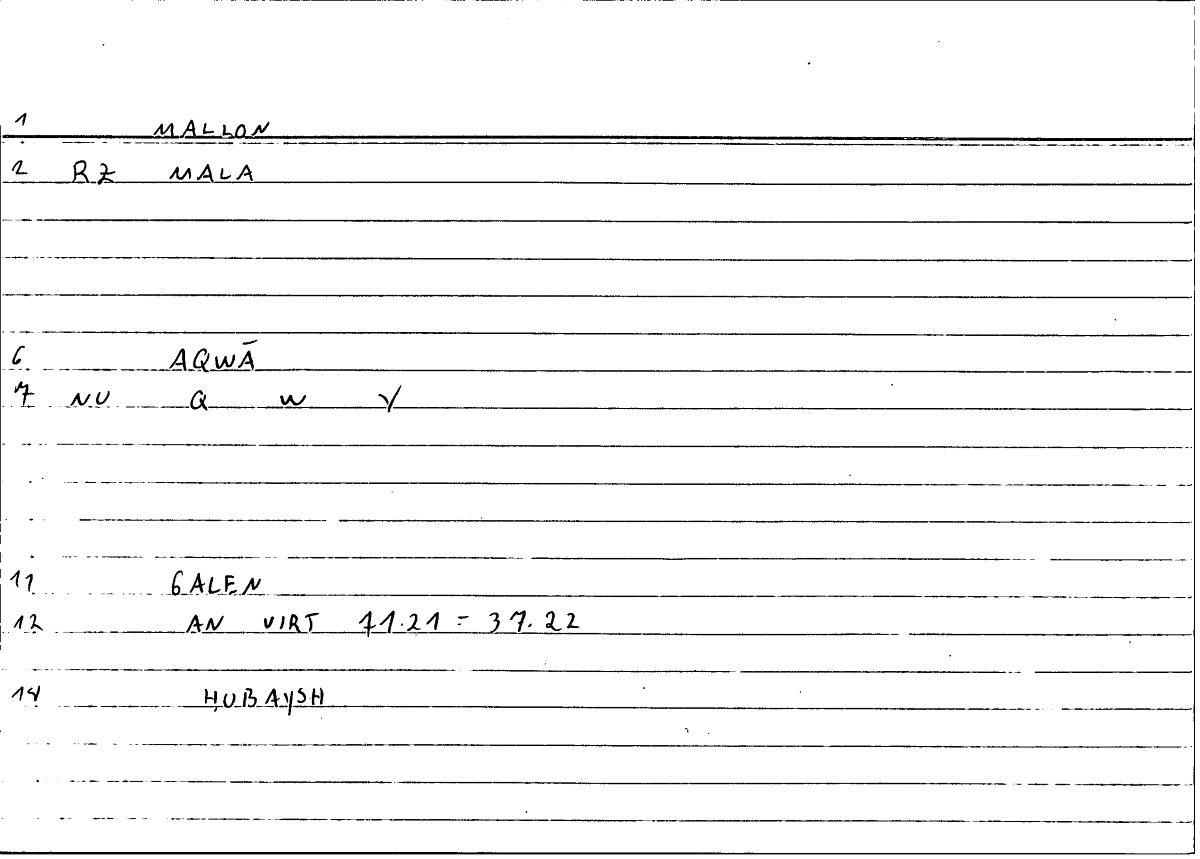 1 MALLON
2 RZ MALA
6 AQWĀ
7 NU Q W Y
11 GALEN
12 AN VIRT 71.21 = 37.22
14 ḤUBAYSH